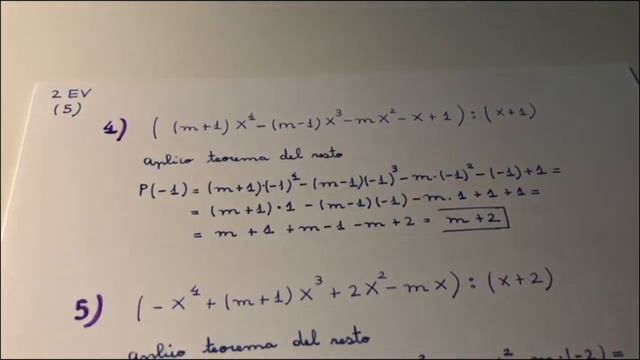 2 EV
(5)
4) ( (m+1) x⁴ - (m-1) x³ - mx² - x + 1 ) : (x+1)
applico teorema del resto
P(-1) = (m+1)·(-1)⁴ - (m-1)(-1)³ - m·(-1)² - (-1) + 1 =
= (m+1)·1 - (m-1)(-1) - m·1 + 1 + 1 =
= m + 1 + m - 1 - m + 2 = m + 2
5) ( - x⁴ + (m+1) x³ + 2x² - mx ) : (x+2)
applico teorema del resto